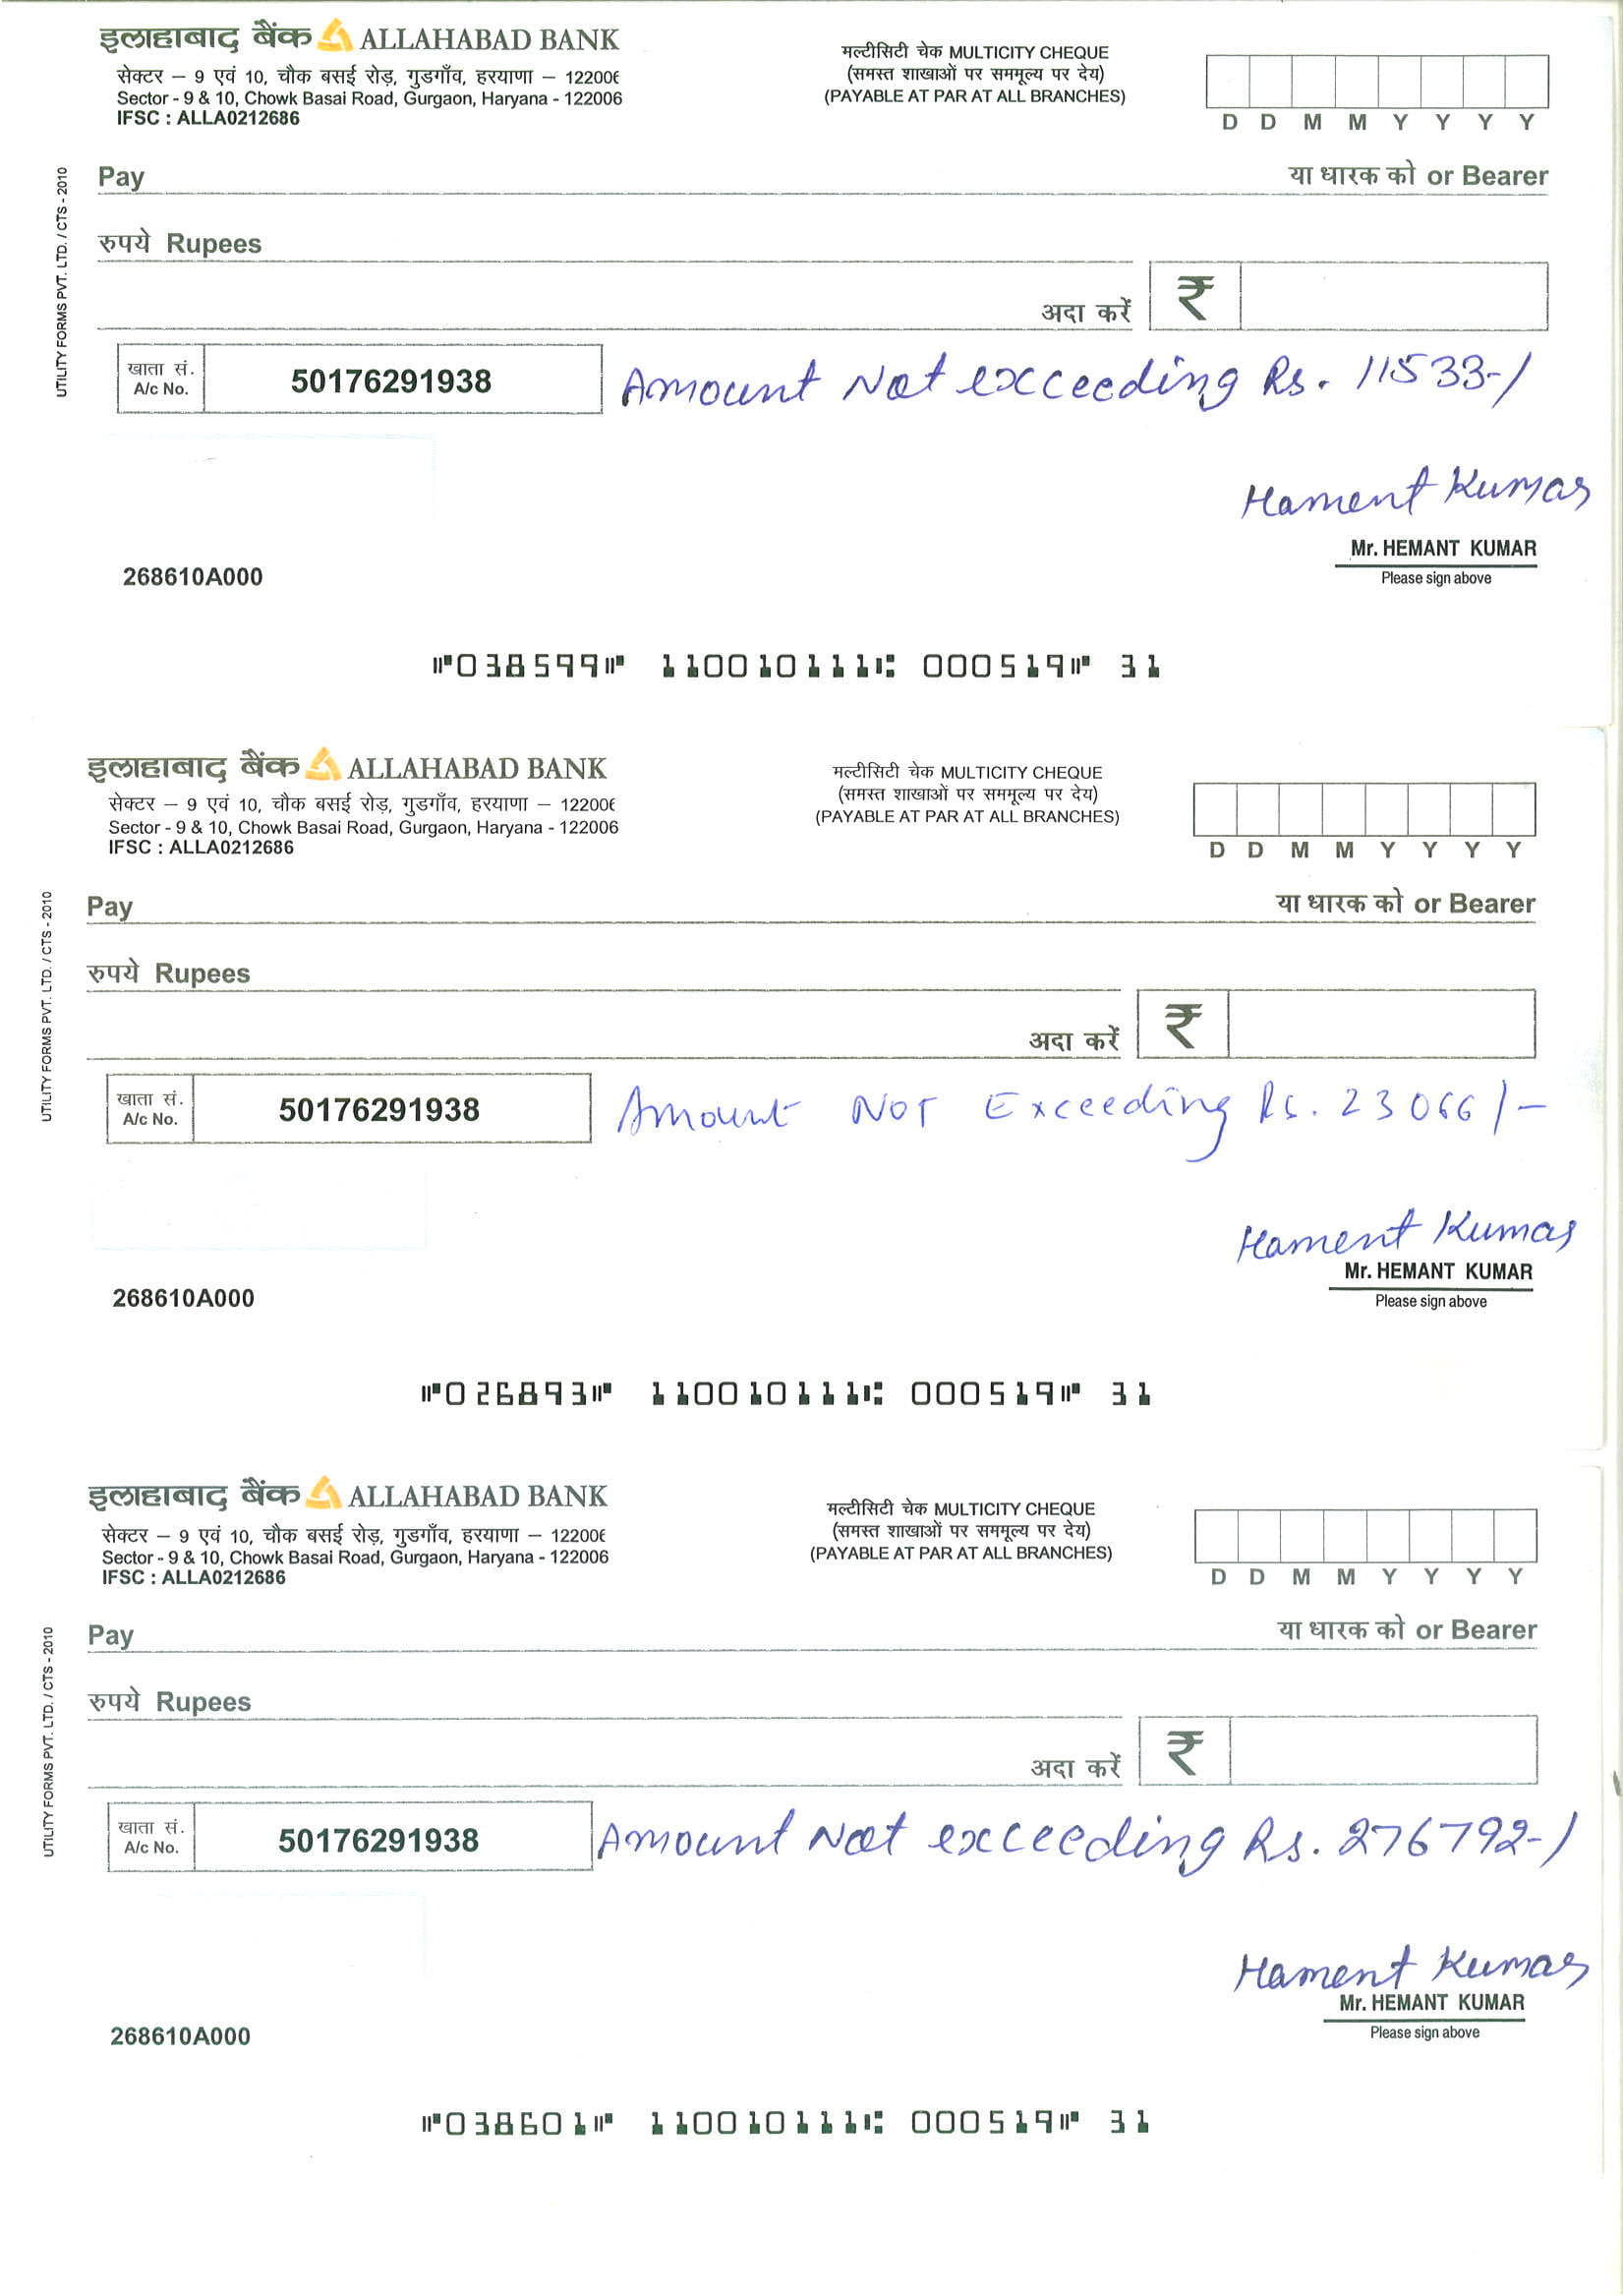 इलाहाबाद बैंक ALLAHABAD BANK
सेक्टर – 9 एवं 10, चौक बसई रोड़, गुडगाँव, हरयाणा – 122006
Sector - 9 & 10, Chowk Basai Road, Gurgaon, Haryana - 122006
IFSC : ALLA0212686
मल्टीसिटी चेक MULTICITY CHEQUE
(समस्त शाखाओं पर सममूल्य पर देय)
(PAYABLE AT PAR AT ALL BRANCHES)
D D M M Y Y Y Y
UTILITY FORMS PVT. LTD. / CTS - 2010
Pay या धारक को or Bearer
रुपये Rupees
अदा करें ₹
खाता सं.
A/c No.
50176291938
Amount Not exceeding Rs. 11533-/
Hament Kumar
Mr. HEMANT KUMAR
Please sign above
268610A000
⑈038599⑈ 110010111⑆ 000519⑈ 31
इलाहाबाद बैंक ALLAHABAD BANK
सेक्टर – 9 एवं 10, चौक बसई रोड़, गुडगाँव, हरयाणा – 122006
Sector - 9 & 10, Chowk Basai Road, Gurgaon, Haryana - 122006
IFSC : ALLA0212686
मल्टीसिटी चेक MULTICITY CHEQUE
(समस्त शाखाओं पर सममूल्य पर देय)
(PAYABLE AT PAR AT ALL BRANCHES)
D D M M Y Y Y Y
UTILITY FORMS PVT. LTD. / CTS - 2010
Pay या धारक को or Bearer
रुपये Rupees
अदा करें ₹
खाता सं.
A/c No.
50176291938
Amount NOT Exceeding Rs. 23066/-
Hament Kumar
Mr. HEMANT KUMAR
Please sign above
268610A000
⑈026893⑈ 110010111⑆ 000519⑈ 31
इलाहाबाद बैंक ALLAHABAD BANK
सेक्टर – 9 एवं 10, चौक बसई रोड़, गुडगाँव, हरयाणा – 122006
Sector - 9 & 10, Chowk Basai Road, Gurgaon, Haryana - 122006
IFSC : ALLA0212686
मल्टीसिटी चेक MULTICITY CHEQUE
(समस्त शाखाओं पर सममूल्य पर देय)
(PAYABLE AT PAR AT ALL BRANCHES)
D D M M Y Y Y Y
UTILITY FORMS PVT. LTD. / CTS - 2010
Pay या धारक को or Bearer
रुपये Rupees
अदा करें ₹
खाता सं.
A/c No.
50176291938
Amount Not exceeding Rs. 276792-/
Hament Kumar
Mr. HEMANT KUMAR
Please sign above
268610A000
⑈038601⑈ 110010111⑆ 000519⑈ 31